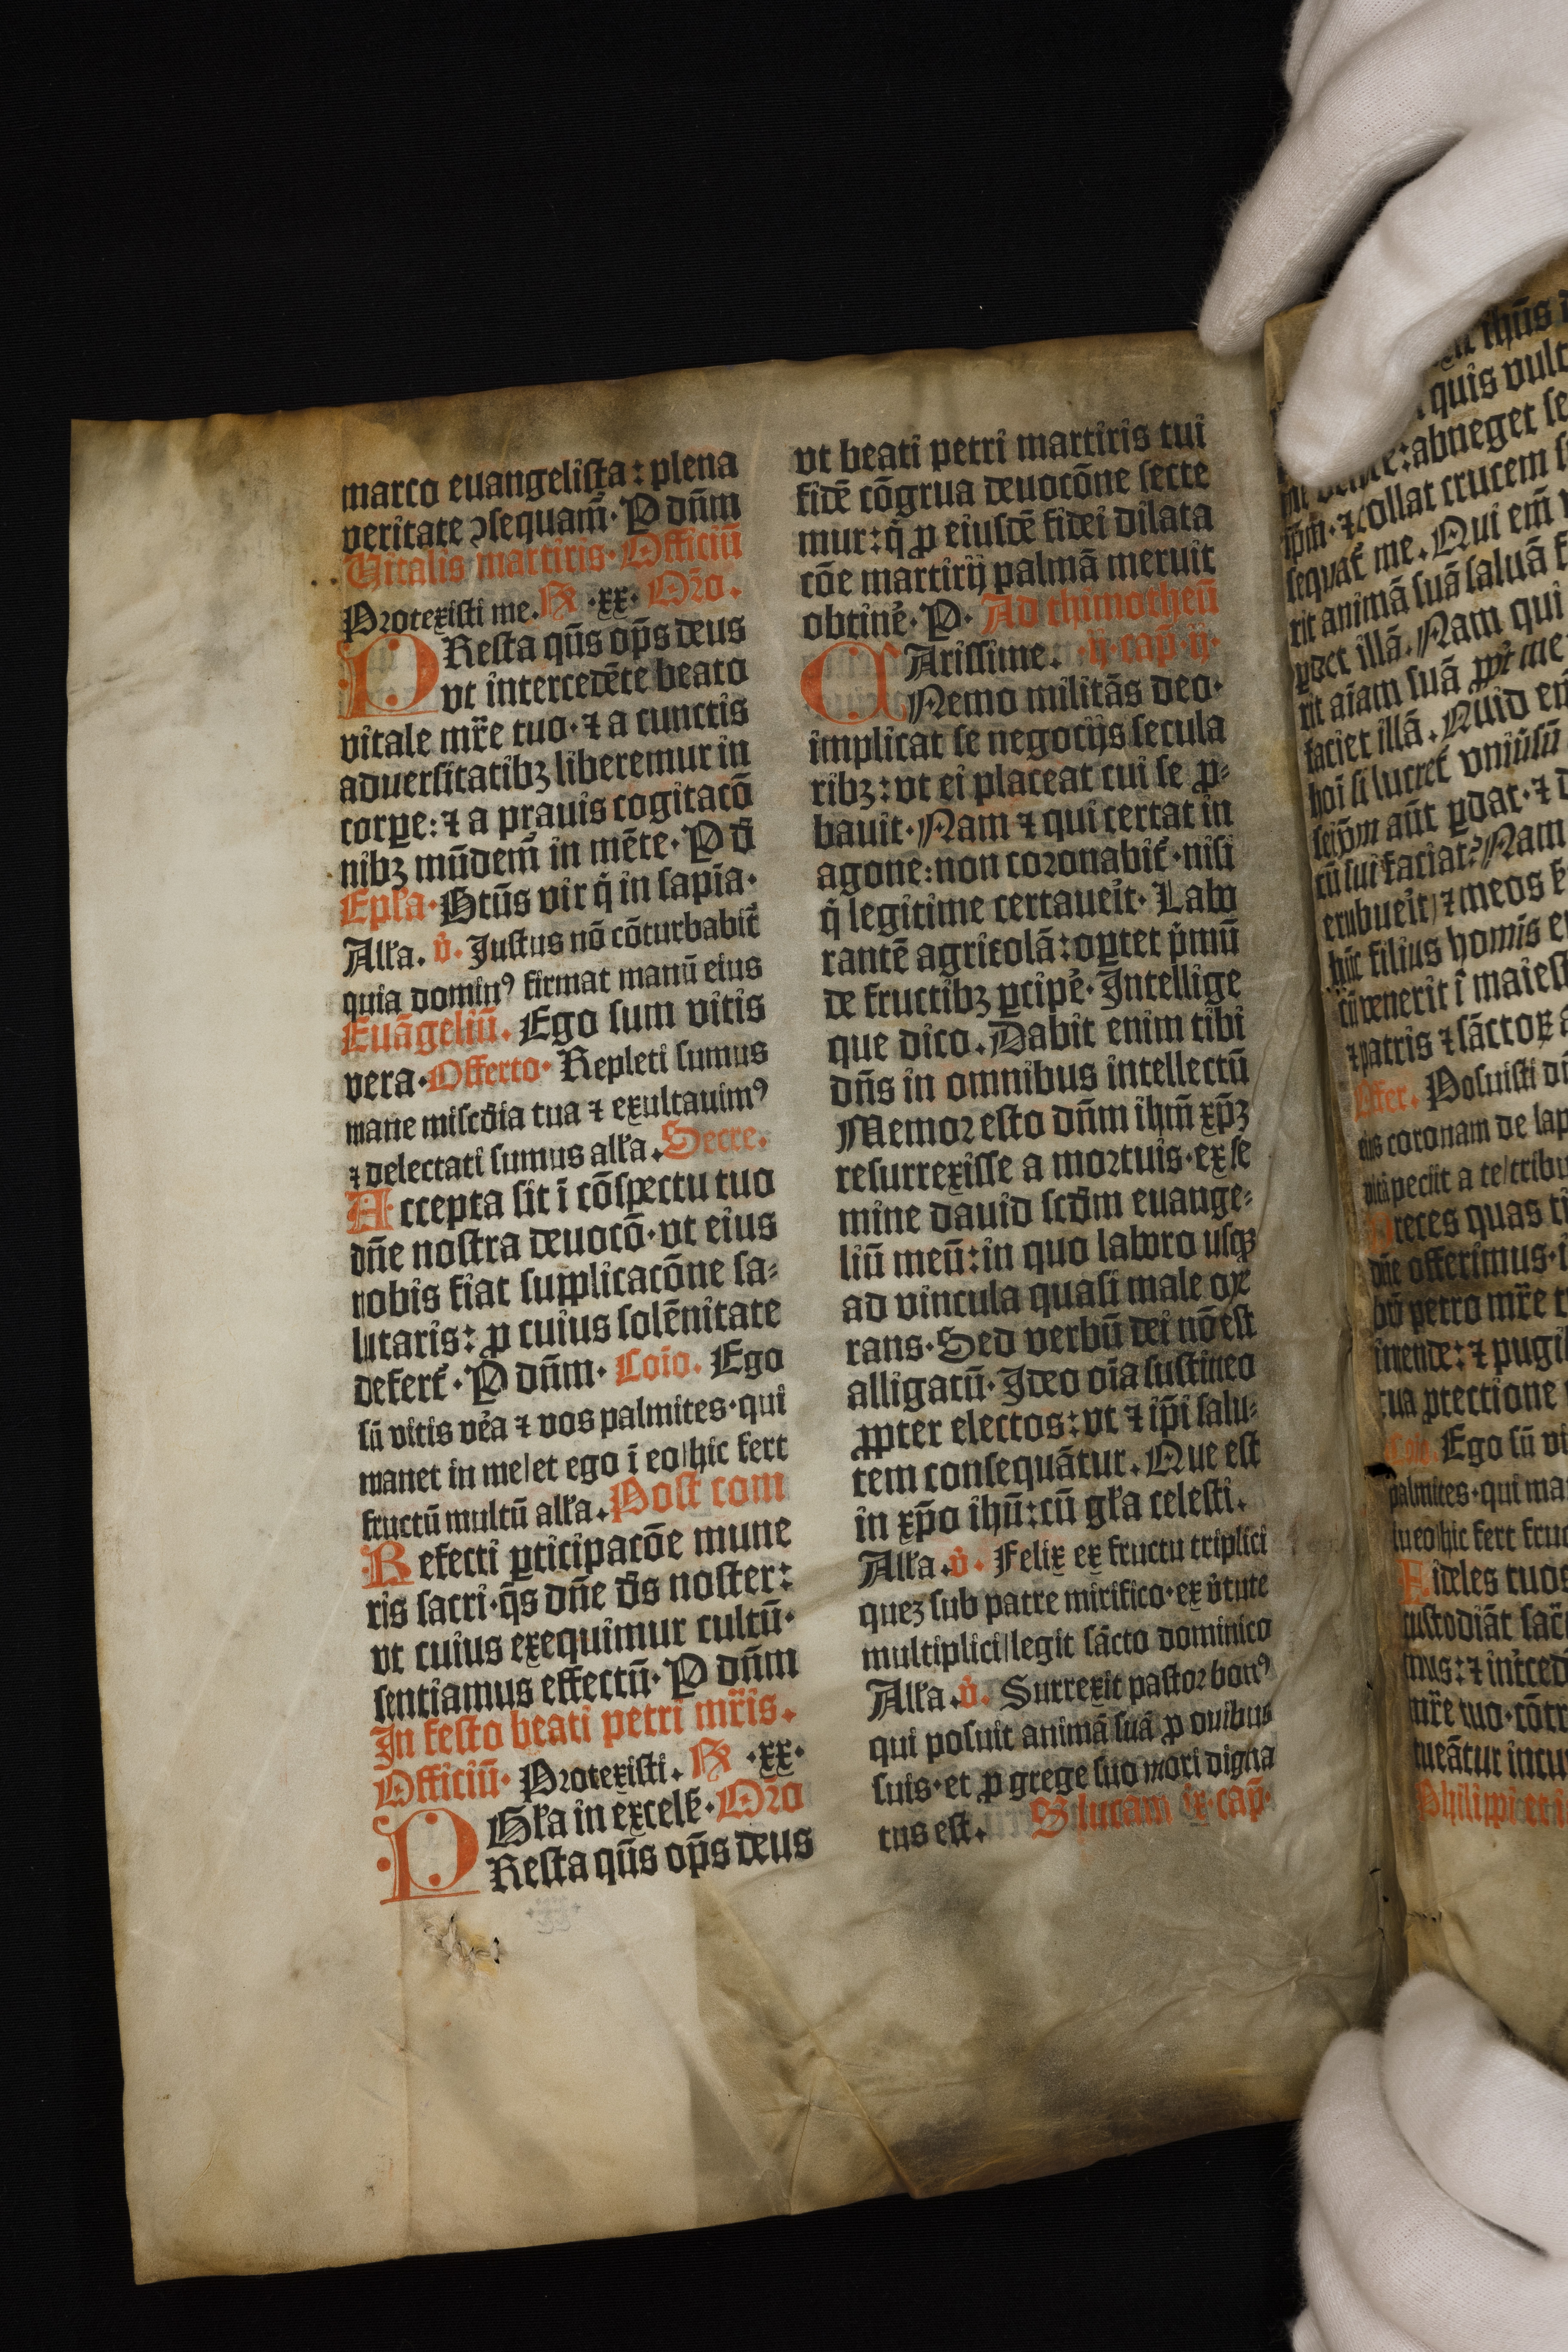 marco euangelista: plena
veritate ↄsequam̄· P dn̄m
Vitalis martiris· Officiū
Protexisti me. R̷ ·xx· Or̄o.
PResta qūs op̄s deus
vt intercedēte beato
vitale mr̄e tuo· ⁊ a cunctis
aduersitatibꝫ liberemur in
corꝑe: ⁊ a prauis cogitacō
nibꝫ mūdem̄ in mēte· P d̄
Ep̄ła· Btūs vir q̇ in sapīa·
Alła. v̇. Justus nō cōturbabit᷑
quia dominꝰ firmat manū eius
Euāgeliū. Ego sum vitis
vera· Offerto· Repleti sumus
mane miscdīa tua ⁊ exultauimꝰ
⁊ delectati sumus alła. Secre.
Accepta sit ī cōspectu tuo
dn̄e nostra deuocō· vt eius
nobis fiat supplicacōne sa⸗
lutaris: ꝑ cuius solēnitate
defert᷑· P dn̄m· Coīo. Ego
sū vitis v̓a ⁊ vos palmites· qui
manet in me/et ego ī eo/hic fert
fructū multū alła. Post com
Refecti ꝑticipacōe mune
ris sacri· q̄s dn̄e d̄s noster:
vt cuius exequimur cultū·
sentiamus effectū· P dn̄m
In festo beati petri mr̄is.
Officiū· Protexisti. R̷ ·xx·
Gła in excels̄· Or̄o
PResta qūs op̄s deus
vt beati petri martiris tui
fidē cōgrua deuocōne secte
mur: q̇ ꝓ eiusdē fidei dilata
cōe martirij palmā meruit
obtin̓e· P· Ad thimotheū
CArissime. ·ij· cap̄·ij·
Nemo militās deo·
implicat se negocijs secula
ribꝫ: vt ei placeat cui se ꝓ⸗
bauit· Nam ⁊ qui certat in
agone: non coronabit᷑· nisi
q̇ legitime certaueit· Labo
rantē agricolā: oꝑtet p̓mū
de fructibꝫ ꝑcip̓e· Intellige
que dico. Dabit enim tibi
dn̄s in omnibus intellectū
Memor esto dn̄m ihm̄ xp̄ꝫ
resurrexisse a mortuis· ex se
mine dauid scd̄m euange⸗
liū meū: in quo laboro usqꝫ
ad vincula quasi male oꝑe
rans· Sed verbū dei nō est
alligatū· Ideo oīa sustineo
ꝓpter electos: vt ⁊ ip̄i salu⸗
tem consequātur. Que est
in xp̄o ihū: cū gła celesti.
Alła. v̇. Felix ex fructu triplici
queꝫ sub patre mirifico· ex v̓tute
multiplici/legit sācto dominico
Alła. v̇. Surrexit pastor bonꝰ
qui posuit animā suā ꝓ ouibus
suis· et ꝓ grege suo mori digna
tus est. S̄ lucam ix· cap̄·
ihūs
quis vult
abneget se
⁊ tollat crucem
sequat᷑ me. Qui em̄
rit animā suā saluā
ꝑdet illā. Nam qui
rit aīam suā ꝓpt̓ me
faciet illā. Quid
hōi si lucret᷑ vniūsū
aūt ꝑdat· ⁊
sui faciat? Nam
erubueit/ ⁊ meos
hūc filius homis
cū venerit ī maiest
⁊ patris ⁊ sāctoꝝ
Offer. Posuisti
eis coronam de lap
vitā peciit a te/tribu
Preces quas
dn̄e offerimus·
bt̄o petro mr̄e
intende: ⁊ pugil
tua ꝓtectione
Coīo. Ego sū vi
palmites· qui ma
in eo/hic fert fruc
Fideles tuos
custodiāt
mus: ⁊ int̓ced
mr̄e tuo· cōtr
tueātur incur
Philippi et